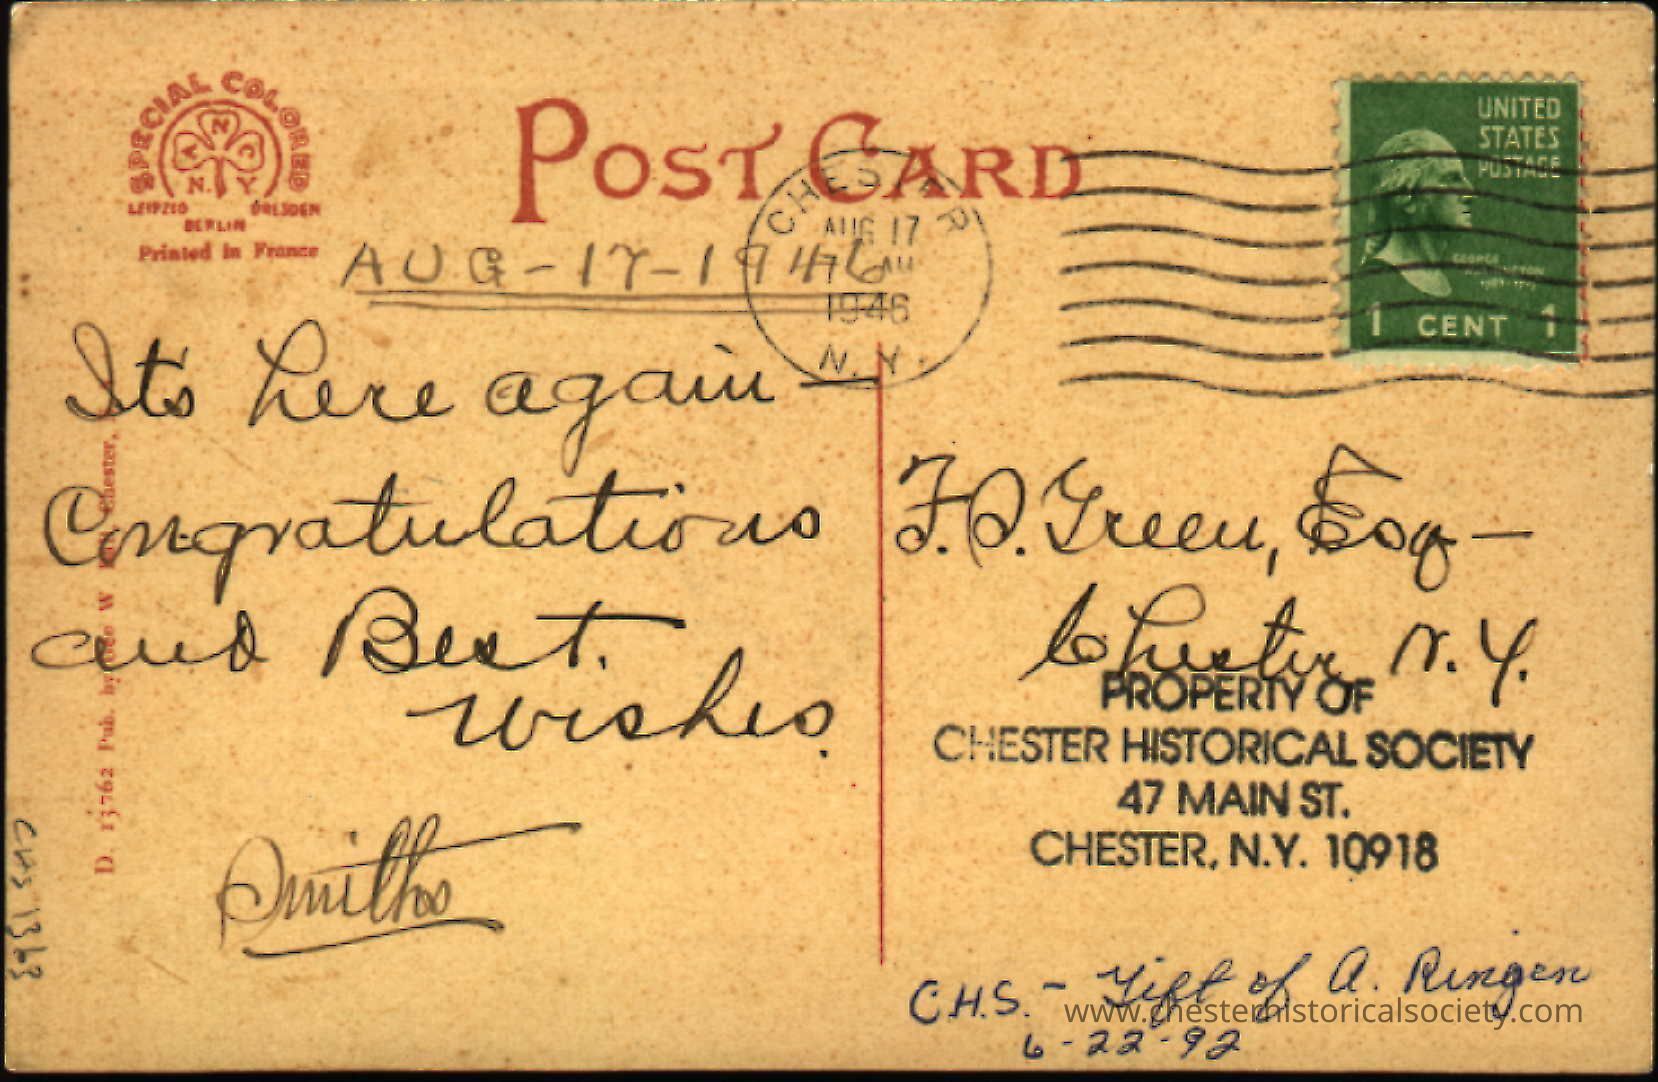 SPECIAL COLORED
A N C
N. Y.
LEIPZIG DRESDEN
BERLIN
Printed in France
POST CARD
CHESTER
AUG 17
1946
N. Y.
UNITED
STATES
POSTAGE
GEORGE
WASHINGTON
1 CENT 1
AUG-17-1946
Its here again —
Congratulations
and Best.
wishes.
Smiths
F. D. Green, Esq —
Chester N. Y.
PROPERTY OF
CHESTER HISTORICAL SOCIETY
47 MAIN ST.
CHESTER, N.Y. 10918
C.H.S. - Gift of A. Ringen
6-22-92
www.chesterhistoricalsociety.com
D. 13762 Pub. by W Chester,
CHS 1363